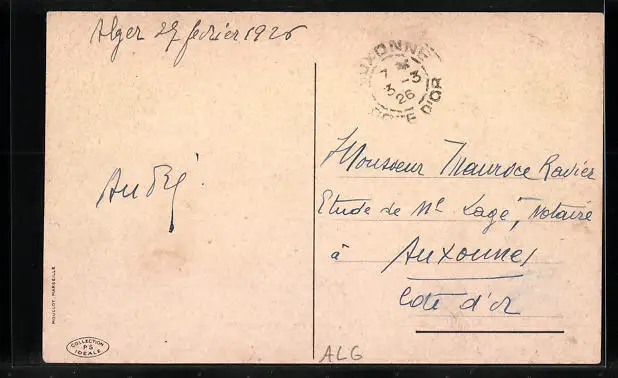 Alger 27 février 1926
AUXONNE
7 - 3
3
26
COTE D'OR
André
Monsieur Maurice Ravier
Etude de Me Lagé, Notaire
à Auxonne
Côte d'or
MOULLOT, MARSEILLE
COLLECTION
PS
IDÉALE
ALG